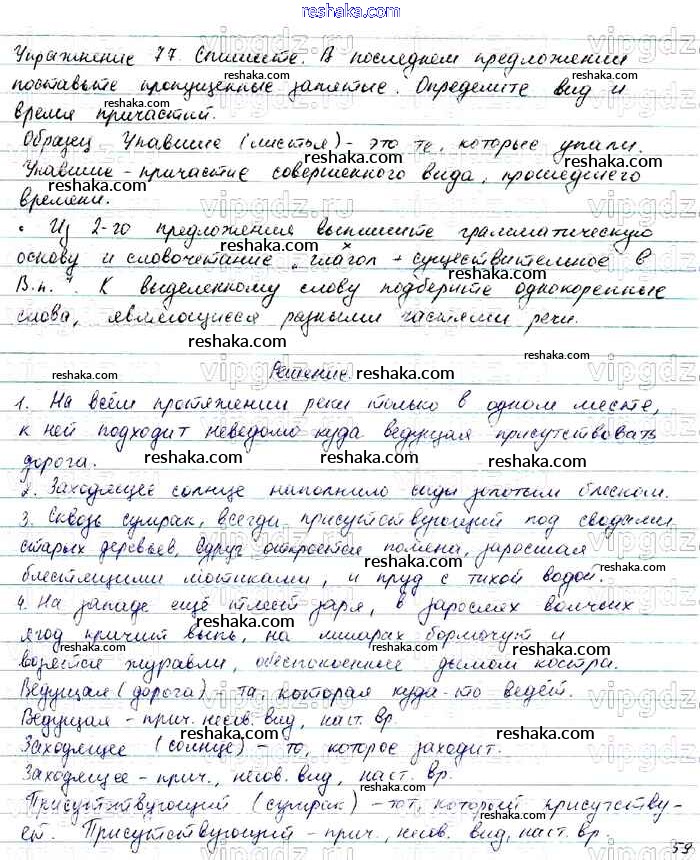 reshaka.com
Упражнение 77. Спишите. В последнем предложении
поставьте пропущенные запятые. Определите вид и
время причастий.
Образец Упавшие (листья) - это те, которые упали.
Упавшие - причастие совершенного вида, прошедшего
времени.
• Из 2-го предложения выпишите грамматическую
основу и словосочетание „глагол + существительное в
В.п.". К выделенному слову подберите однокоренные
слова, являющиеся разными частями речи.
Решение
1. На всём протяжении реки только в одном месте,
к ней подходит неведомо куда ведущая присутствовать
дорога.
2. Заходящее солнце наполнило сады золотым блеском.
3. Сквозь сумрак, всегда присутствующий под сводами
старых деревьев, вдруг откроется поляна, заросшая
блестящими лютиками, и пруд с тихой водой.
4. На западе ещё тлеет заря, в зарослях волчьих
ягод кричит выпь, на мшарах бормочут и
возятся журавли, обеспокоенные дымом костра.
Ведущая (дорога) - та, которая куда-то ведёт.
Ведущая - прич. несов. вид, наст. вр.
Заходящее (солнце) - то, которое заходит.
Заходящее - прич., несов. вид, наст. вр.
Присутствующий (сумрак) - тот, который присутству-
ет. Присутствующий - прич., несов. вид, наст. вр.
59